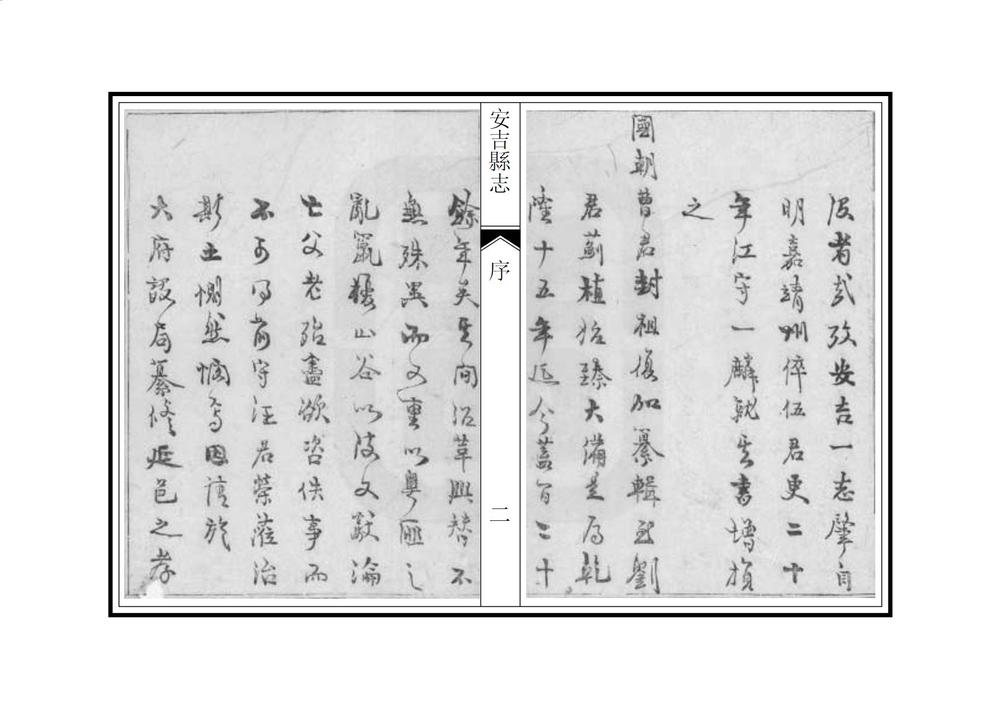 役者或攷安吉一志肇自
明嘉靖州倅伍君更二十
年江守一麟就其書增損
之
國朝曹君封祖復加纂輯至劉
君薊植始臻大備是為乾
隆十五年迄今蓋百二十
安吉縣志
序
二
餘年矣其間沿革興替不
無殊異而又重以粵匪之
亂竄擾山谷以故文獻淪
亡父老殆盡欲咨佚事而
不可得前守汪君榮蒞治
斯土惻然憫焉因請於
大府設局纂修延邑之孝